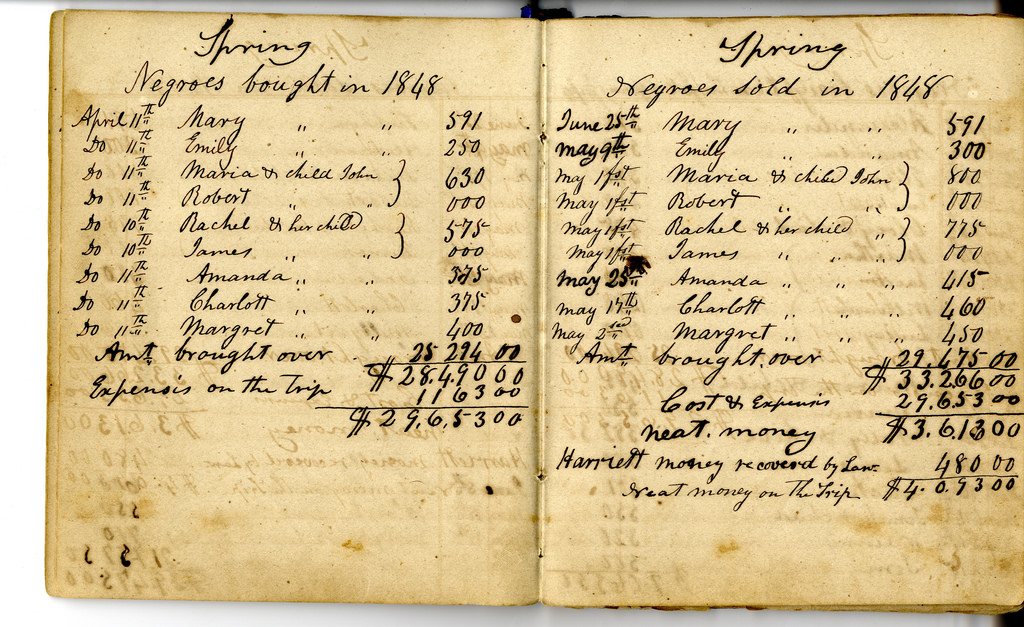 Spring
Negroes bought in 1848
April 11th Mary " " 591
Do 11th Emily " " 250
Do 11th Maria & child John } 630
Do 11th Robert " " 000
Do 10th Rachel & her child } 575
Do 10th James " " 000
Do 11th Amanda " " 375
Do 11th Charlott " 375
Do 11th Margret " " 400
Amt brought over 25 294 00
$28.490 00
Expensis on the Trip 1163 00
$29.653 00
Spring
Negroes sold in 1848
June 25th Mary " " 591
may 9th Emily " " 300
May 1fst Maria & child John } 800
May 1fst Robert " " 000
may 1fst Rachel & her child " } 775
May 1fst James " " 000
may 25th Amanda " " " 415
may 17th Charlott " " " 460
May 2sed Margret " " " 450
Amt brought over 29.475 00
$33.266 00
Cost & Expensis 29.653 00
neat money $3.613 00
Harriett money recoverd by Law 480 00
Neat money on the Trip $4.093 00